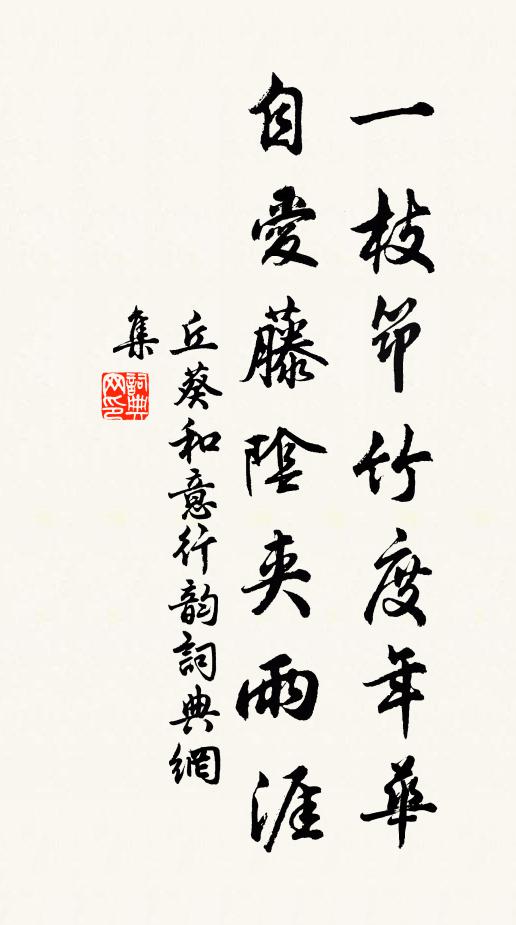 一枝筇竹度年華
自愛藤陰夾雨涯
丘葵和意行韵詞典網
集
詞典網印